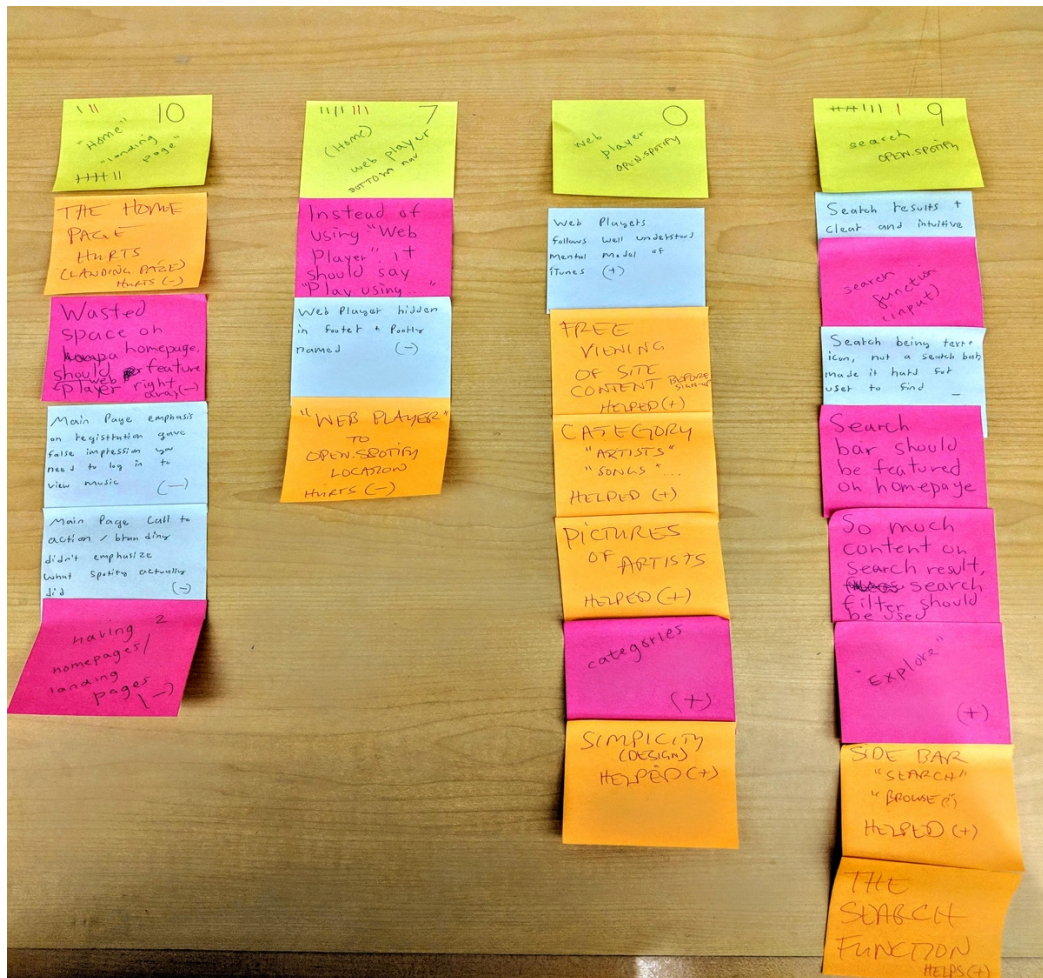 10
"Home"
"landing
page"
THE HOME
PAGE
HURTS
(LANDING PAGE)
HURTS (-)
Wasted
space on
a homepage.
should feature
web
player right
away (-)
Main Page emphasis
on registration gave
false impression you
need to log in to
view music (-)
Main Page Call to
action / branding
didn't emphasize
what Spotify actually
did (-)
having 2
homepages/
landing
pages
(-)
7
(Home)
web player
BOTTOM NAV
Instead of
using "Web
Player". it
should say
"Play using..."
Web Player hidden
in footer + Poorly
named (-)
"WEB PLAYER"
TO
OPEN.SPOTIFY
LOCATION
HURTS (-)
0
web
player
OPEN.SPOTIFY
Web Players
follows well understand
Mental Model of
iTunes (+)
FREE
VIEWING
OF SITE
CONTENT BEFORE
HELPED (+)
CATEGORY
"ARTISTS"
"SONGS"...
HELPED (+)
PICTURES
OF ARTISTS
HELPED (+)
categories
(+)
SIMPICITY
(DESIGN)
HELPED (+)
9
search
OPEN.SPOTIFY
Search results +
clear and intuitive
search
function
(input)
Search being text+
icon, not a search bar,
made it hard for
user to find -
Search
bar should
be featured
on homepage
So much
content on
search result,
search
filter should
be used
"Explore"
(+)
SIDE BAR
"SEARCH"
"BROWSE"
HELPED (+)
THE
SEARCH
FUNCTION
HELPS (+)